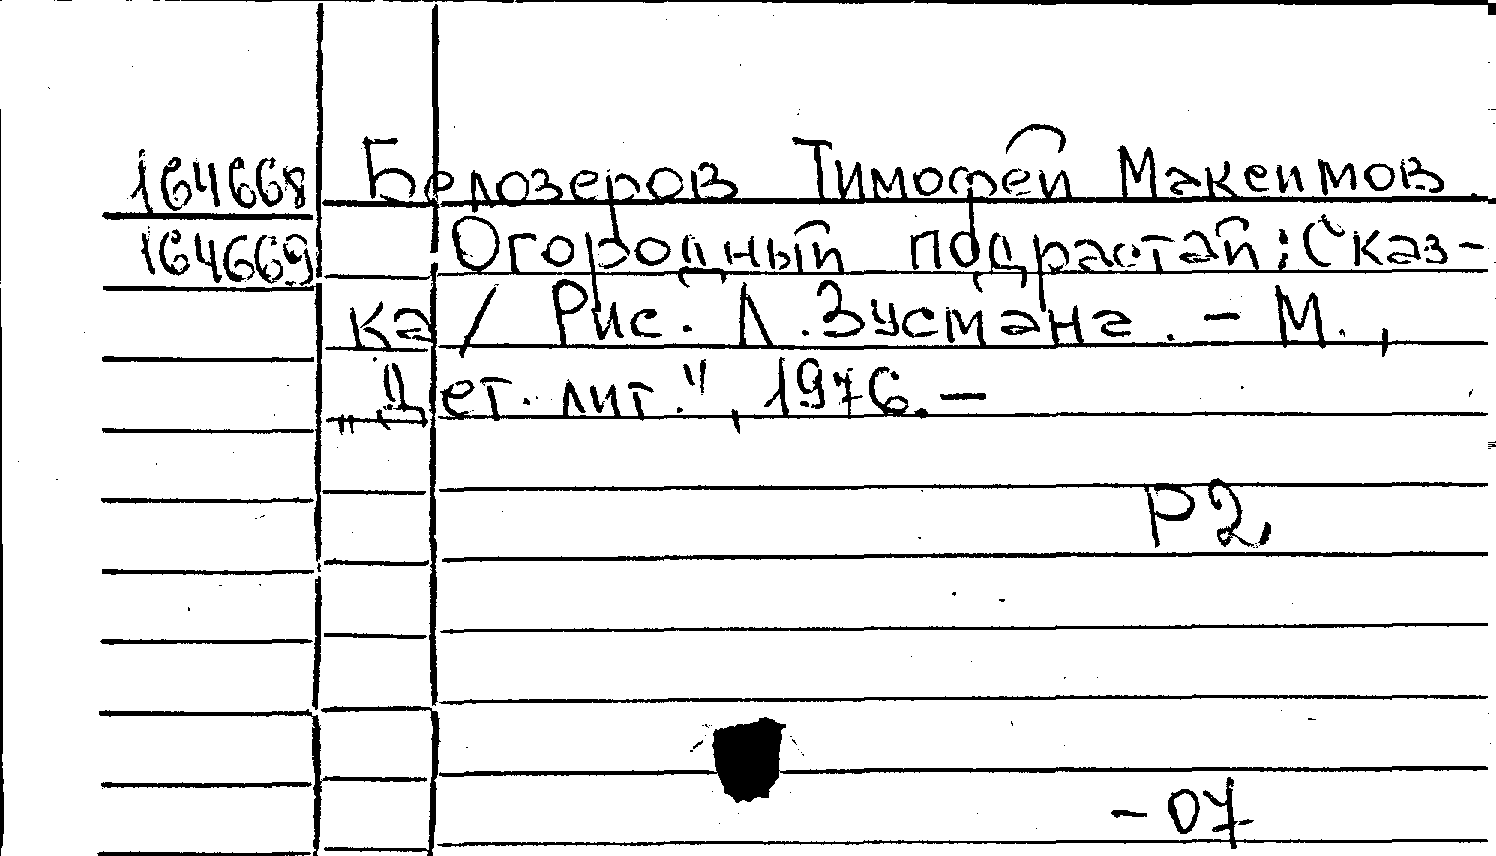 164668 Белозеров Тимофей Максимов.
164669 Огородный подрастай: Сказ-
ка / Рис. Л. Зусмана. - М.,
„Дет. лит.", 1976. -
Р2
- 07